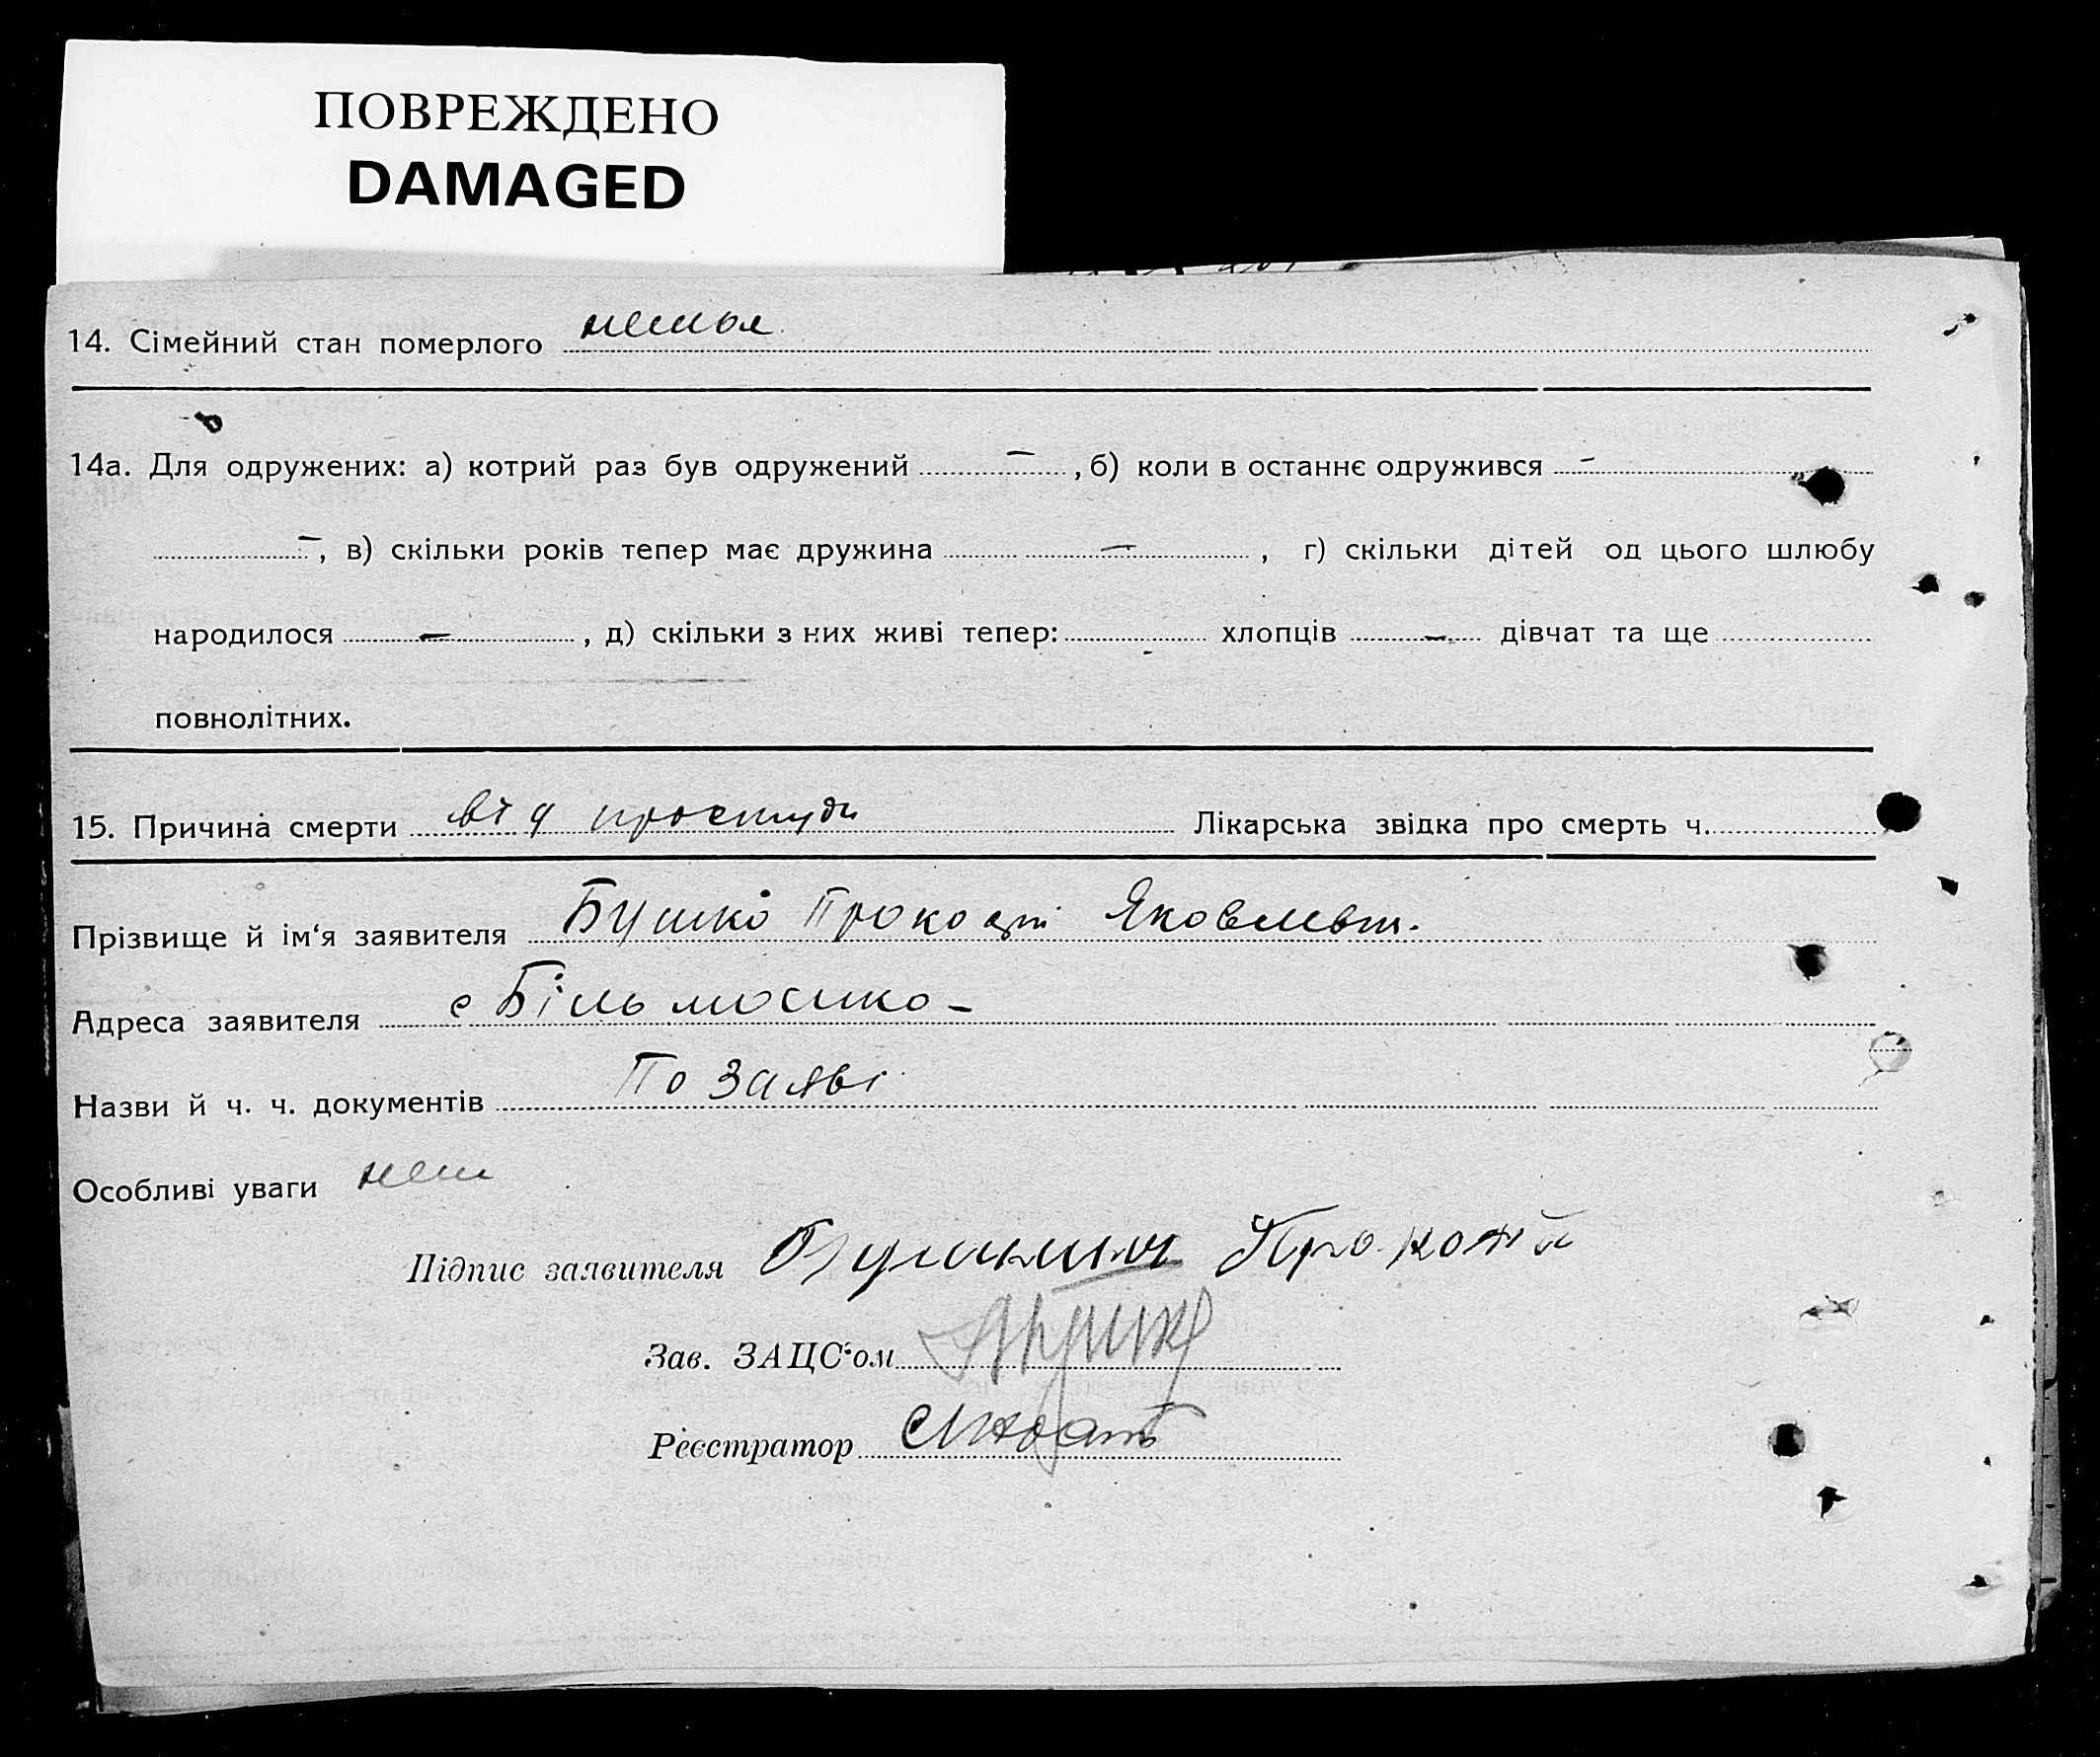 ПОВРЕЖДЕНО
DAMAGED
14. Сімейний стан померлого
14а. Для одружених: а) котрий раз був одружений —, б) коли в останнє одружився -
—, в) скільки років тепер має дружина —, г) скільки дітей од цього шлюбу
народилося —, д) скільки з них живі тепер: хлопців — дівчат та ще
повнолітних.
15. Причина смерти від простуди Лікарська звідка про смерть ч.
Прізвище й ім'я заявителя Бушко Яковлевич.
Адреса заявителя с
Назви й ч. ч. документів По Заяві
Особливі уваги нет
Підпис заявителя
Зав. ЗАЦС'ом
Реєстратор